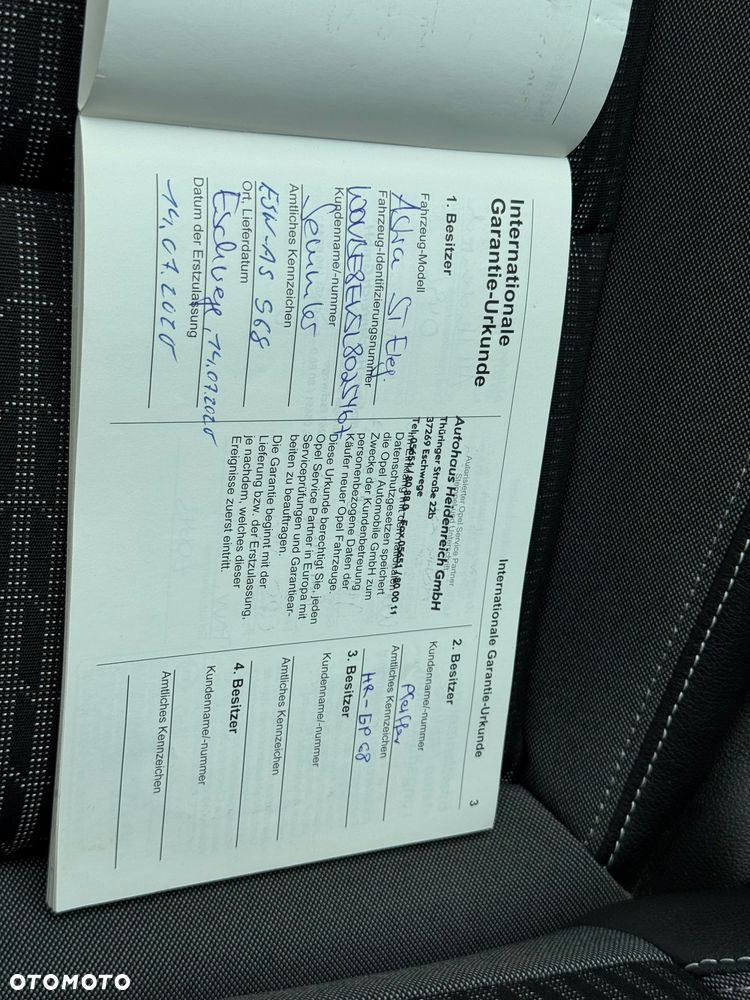 Internationale Garantie-Urkunde
3
Internationale
Garantie-Urkunde
1. Besitzer
Fahrzeug-Modell
Astra ST Eleg.
Fahrzeug-Identifizierungsnummer
Kundenname/-nummer
Amtliches Kennzeichen
ESW-AS 568
Ort, Lieferdatum
Eschwege, 14.07.2020
Datum der Erstzulassung
14.07.2020
Autorisierter Opel Service Partner
Autohaus Heidenreich GmbH
Thüringer Straße 22b
37269 Eschwege
Datenschutzgesetzen speichert
die Opel Automobile GmbH zum
Zwecke der Kundenbetreuung
personenbezogene Daten der
Käufer neuer Opel Fahrzeuge.
Diese Urkunde berechtigt Sie, jeden
Opel Service Partner in Europa mit
Serviceprüfungen und Garantiear-
beiten zu beauftragen.
Die Garantie beginnt mit der
Lieferung bzw. der Erstzulassung,
je nachdem, welches dieser
Ereignisse zuerst eintritt.
2. Besitzer
Kundenname/-nummer
Pfeiffer
Amtliches Kennzeichen
HR-GP 68
3. Besitzer
Kundenname/-nummer
Amtliches Kennzeichen
4. Besitzer
Kundenname/-nummer
Amtliches Kennzeichen
OTOMOTO